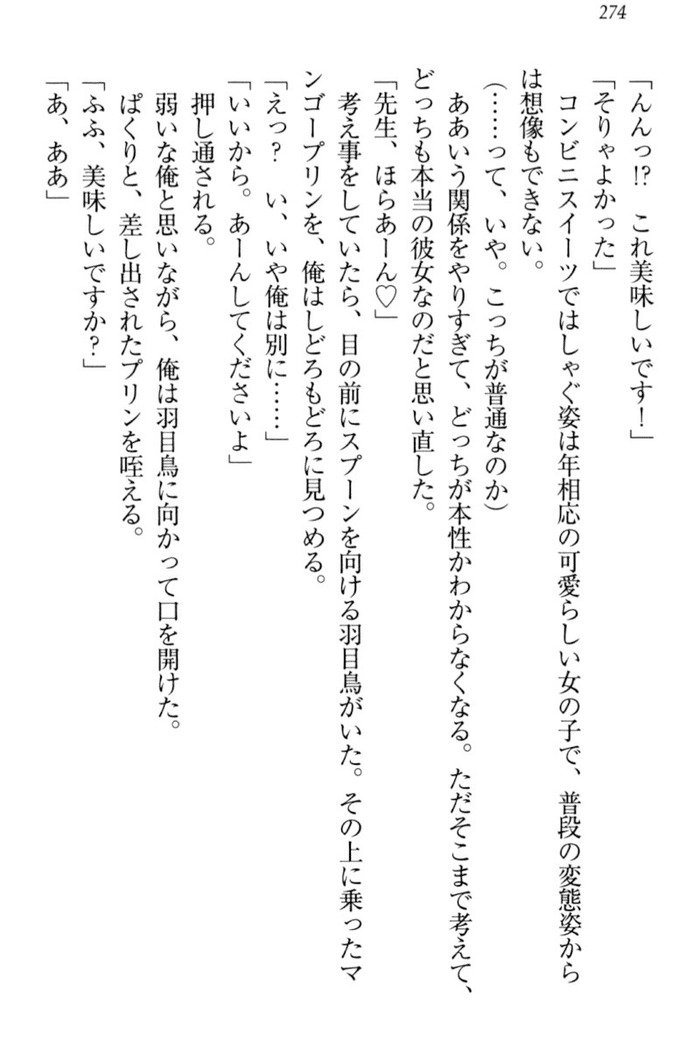 274
「んんっ!?　これ美味しいです！」
「そりゃよかった」
　コンビニスイーツではしゃぐ姿は年相応の可愛らしい女の子で、普段の変態姿から
は想像もできない。
(……って、いや。こっちが普通なのか)
　ああいう関係をやりすぎて、どっちが本性かわからなくなる。ただそこまで考えて、
どっちも本当の彼女なのだと思い直した。
「先生、ほらあーん♡」
　考え事をしていたら、目の前にスプーンを向ける羽目鳥がいた。その上に乗ったマ
ンゴープリンを、俺はしどろもどろに見つめる。
「えっ？　い、いや俺は別に……」
「いいから。あーんしてくださいよ」
押し通される。
　弱いな俺と思いながら、俺は羽目鳥に向かって口を開けた。
　ぱくりと、差し出されたプリンを咥える。
「ふふ、美味しいですか？」
「あ、ああ」